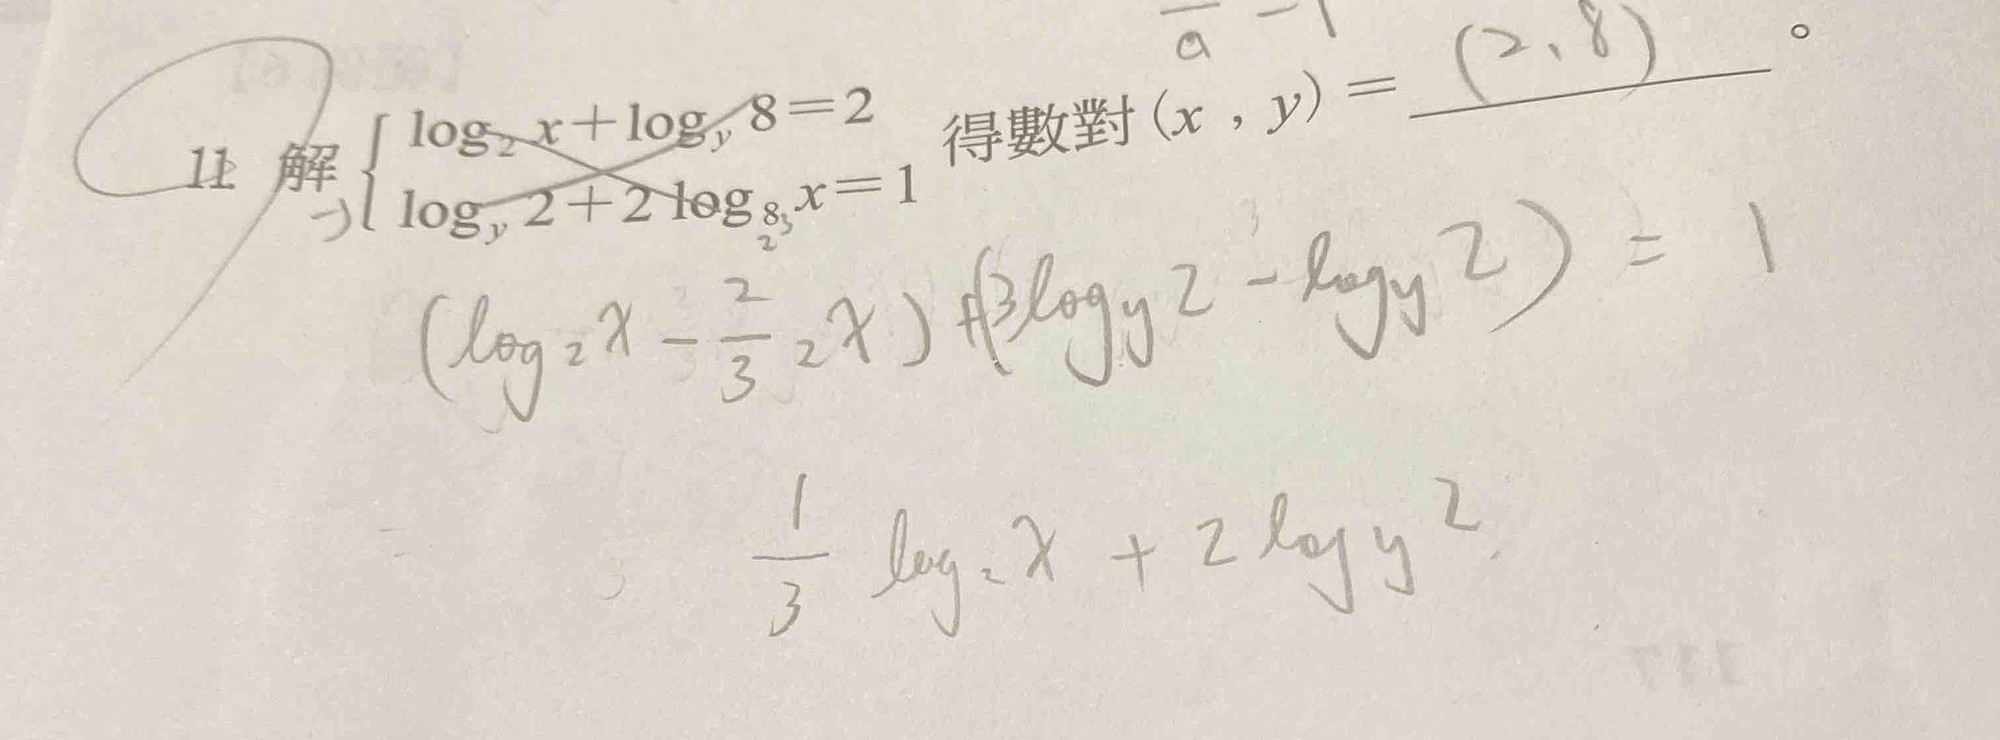 a - 1
11 解 { log₂ x + log_y 8 = 2 得數對 (x , y) = (2, 8) 。
log_y 2 + 2 log₈ x = 1
2³
(log₂x - 2/3 ₂x) + (3log_y2 - log_y2) = 1
1/3 log₂x + 2log_y2